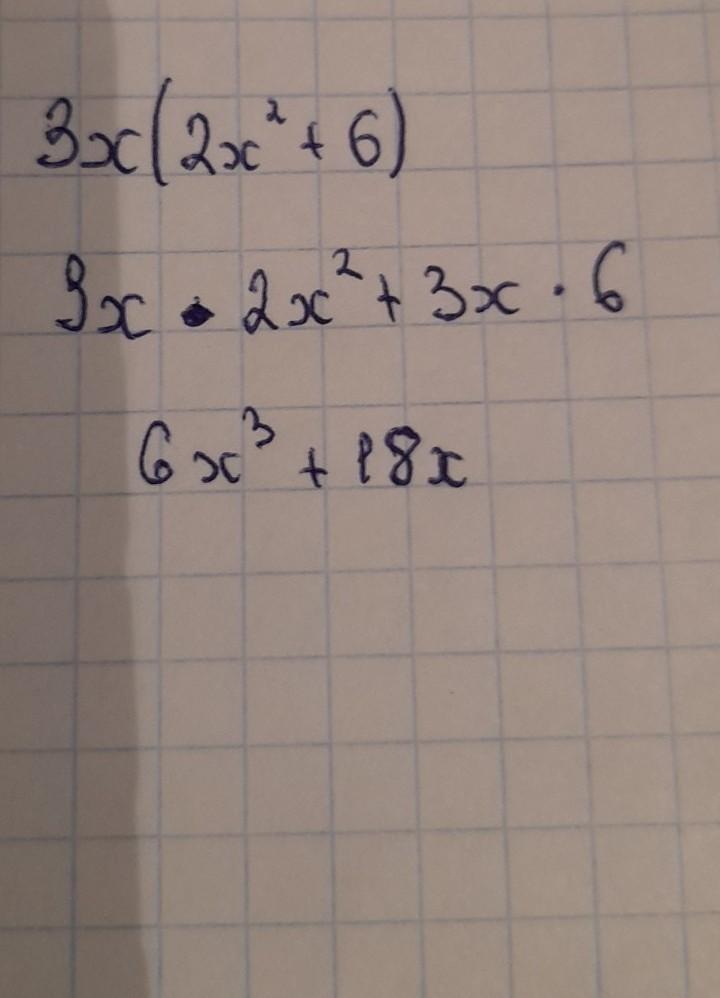 3x(2x² + 6)
3x · 2x² + 3x · 6
6x³ + 18x